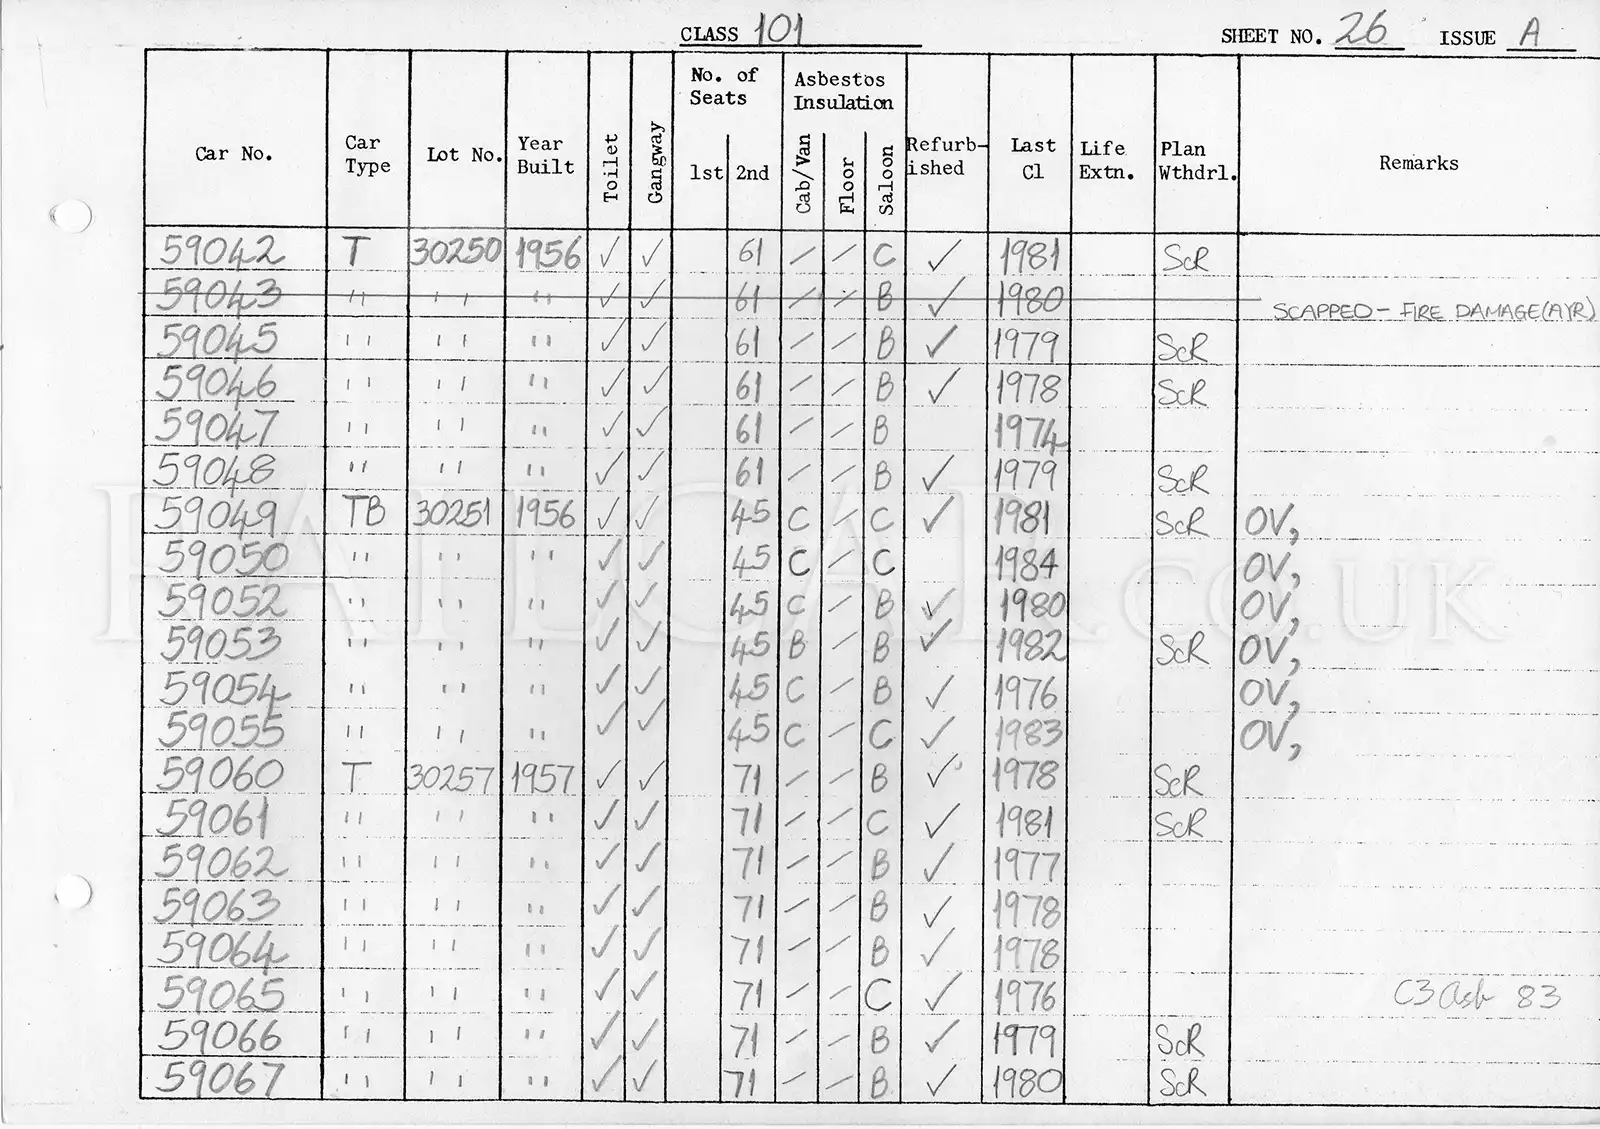 CLASS 101 SHEET NO. 26 ISSUE A
Car No. Car Type Lot No. Year Built Toilet Gangway No. of Seats 1st 2nd Asbestos Insulation Cab/Van Floor Saloon Refurb-ished Last Cl Life Extn. Plan Wthdrl. Remarks
59042 T 30250 1956 ✓ ✓ 61 / / C ✓ 1981 ScR
59043 " " " ✓ ✓ 61 / / B ✓ 1980 SCAPPED - FIRE DAMAGE (AYR)
59045 " " " ✓ ✓ 61 / / B ✓ 1979 ScR
59046 " " " ✓ ✓ 61 / / B ✓ 1978 ScR
59047 " " " ✓ ✓ 61 / / B 1974
59048 " " " ✓ ✓ 61 / / B ✓ 1979 ScR
59049 TB 30251 1956 ✓ ✓ 45 C / C ✓ 1981 ScR OV,
59050 " " " ✓ ✓ 45 C / C 1984 OV,
59052 " " " ✓ ✓ 45 C / B ✓ 1980 OV,
59053 " " " ✓ ✓ 45 B / B ✓ 1982 ScR OV,
59054 " " " ✓ ✓ 45 C / B ✓ 1976 OV,
59055 " " " ✓ ✓ 45 C / C ✓ 1983 OV,
59060 T 30257 1957 ✓ ✓ 71 / / B ✓ 1978 ScR
59061 " " " ✓ ✓ 71 / / C ✓ 1981 ScR
59062 " " " ✓ ✓ 71 / / B ✓ 1977
59063 " " " ✓ ✓ 71 / / B ✓ 1978
59064 " " " ✓ ✓ 71 / / B ✓ 1978
59065 " " " ✓ ✓ 71 / / C ✓ 1976 C3 Asb 83
59066 " " " ✓ ✓ 71 / / B ✓ 1979 ScR
59067 " " " ✓ ✓ 71 / / B ✓ 1980 ScR
RAILCAR.CO.UK